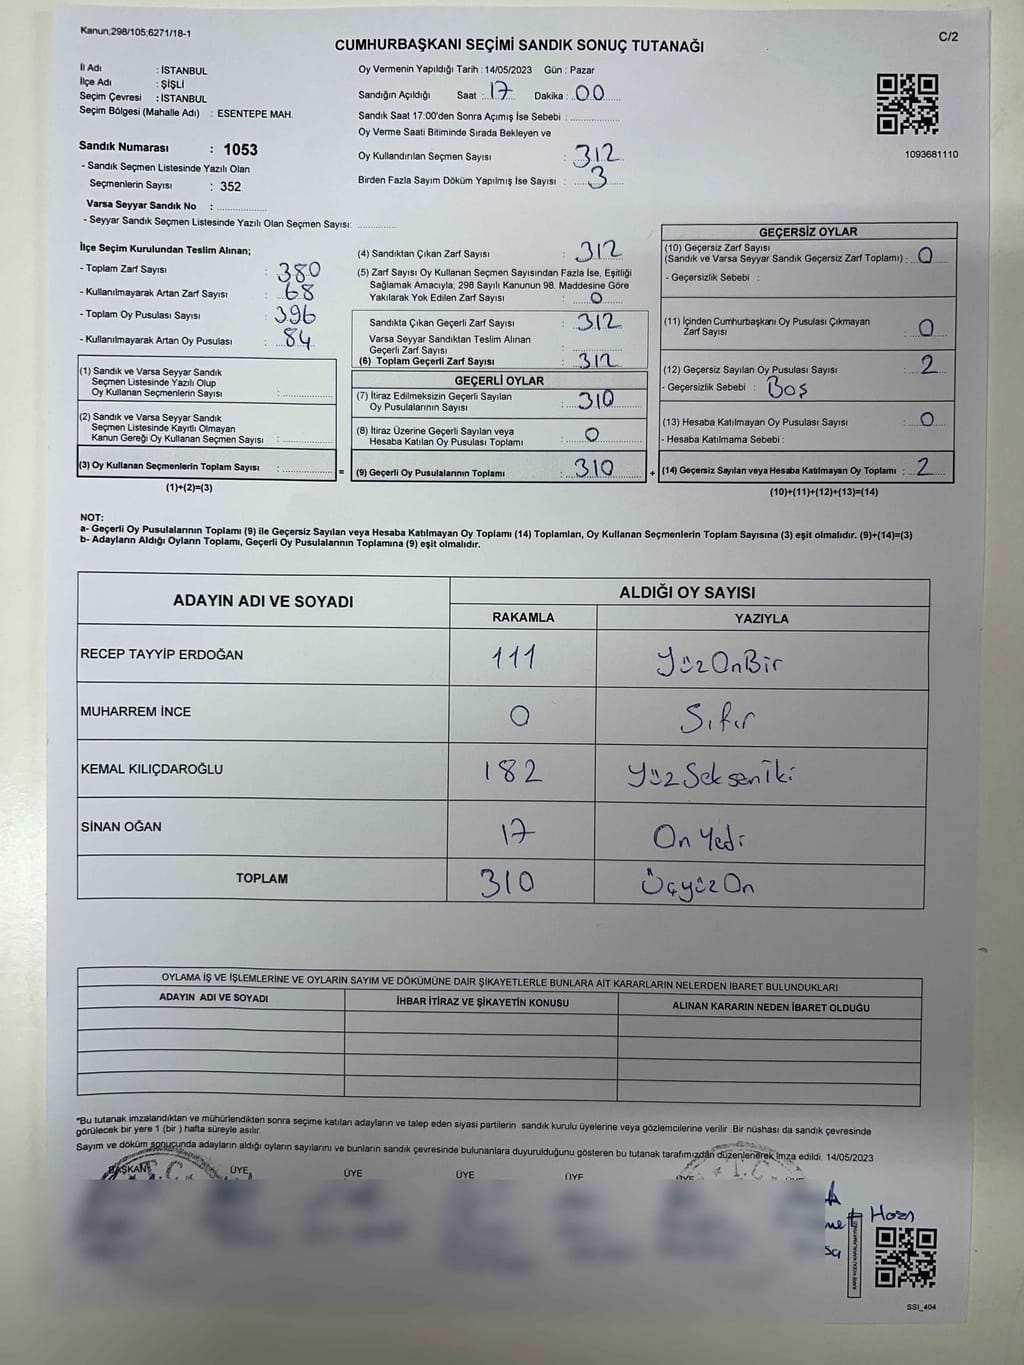 Kanun;298/105;6271/18-1
CUMHURBAŞKANI SEÇİMİ SANDIK SONUÇ TUTANAĞI
C/2
İl Adı : İSTANBUL
İlçe Adı : ŞİŞLİ
Seçim Çevresi : İSTANBUL
Seçim Bölgesi (Mahalle Adı) : ESENTEPE MAH.
Sandık Numarası : 1053
- Sandık Seçmen Listesinde Yazılı Olan
Seçmenlerin Sayısı : 352
Varsa Seyyar Sandık No :
- Seyyar Sandık Seçmen Listesinde Yazılı Olan Seçmen Sayısı:
Oy Vermenin Yapıldığı Tarih : 14/05/2023 Gün : Pazar
Sandığın Açıldığı Saat : 17 Dakika : 00
Sandık Saat 17:00'den Sonra Açımış İse Sebebi :
Oy Verme Saati Bitiminde Sırada Bekleyen ve
Oy Kullandırılan Seçmen Sayısı : 312
Birden Fazla Sayım Döküm Yapılmış İse Sayısı : 3
1093681110
İlçe Seçim Kurulundan Teslim Alınan;
- Toplam Zarf Sayısı : 380
- Kullanılmayarak Artan Zarf Sayısı : 68
- Toplam Oy Pusulası Sayısı : 396
- Kullanılmayarak Artan Oy Pusulası : 84
(1) Sandık ve Varsa Seyyar Sandık
Seçmen Listesinde Yazılı Olup
Oy Kullanan Seçmenlerin Sayısı :
(2) Sandık ve Varsa Seyyar Sandık
Seçmen Listesinde Kayıtlı Olmayan
Kanun Gereği Oy Kullanan Seçmen Sayısı :
(3) Oy Kullanan Seçmenlerin Toplam Sayısı :
(1)+(2)=(3)
(4) Sandıktan Çıkan Zarf Sayısı : 312
(5) Zarf Sayısı Oy Kullanan Seçmen Sayısından Fazla İse, Eşitliği
Sağlamak Amacıyla; 298 Sayılı Kanunun 98. Maddesine Göre
Yakılarak Yok Edilen Zarf Sayısı : 0
Sandıkta Çıkan Geçerli Zarf Sayısı : 312
Varsa Seyyar Sandıktan Teslim Alınan
Geçerli Zarf Sayısı :
(6) Toplam Geçerli Zarf Sayısı : 312
GEÇERLİ OYLAR
(7) İtiraz Edilmeksizin Geçerli Sayılan
Oy Pusulalarının Sayısı : 310
(8) İtiraz Üzerine Geçerli Sayılan veya
Hesaba Katılan Oy Pusulası Toplamı : 0
= (9) Geçerli Oy Pusulalarının Toplamı : 310 +
GEÇERSİZ OYLAR
(10) Geçersiz Zarf Sayısı
(Sandık ve Varsa Seyyar Sandık Geçersiz Zarf Toplamı) : 0
- Geçersizlik Sebebi :
(11) İçinden Cumhurbaşkanı Oy Pusulası Çıkmayan
Zarf Sayısı : 0
(12) Geçersiz Sayılan Oy Pusulası Sayısı : 2
- Geçersizlik Sebebi : Boş
(13) Hesaba Katılmayan Oy Pusulası Sayısı : 0
- Hesaba Katılmama Sebebi :
(14) Geçersiz Sayılan veya Hesaba Katılmayan Oy Toplamı : 2
(10)+(11)+(12)+(13)=(14)
NOT:
a- Geçerli Oy Pusulalarının Toplamı (9) ile Geçersiz Sayılan veya Hesaba Katılmayan Oy Toplamı (14) Toplamları, Oy Kullanan Seçmenlerin Toplam Sayısına (3) eşit olmalıdır. (9)+(14)=(3)
b- Adayların Aldığı Oyların Toplamı, Geçerli Oy Pusulalarının Toplamına (9) eşit olmalıdır.
ADAYIN ADI VE SOYADI
ALDIĞI OY SAYISI
RAKAMLA YAZIYLA
RECEP TAYYİP ERDOĞAN 111 YüzOnBir
MUHARREM İNCE 0 Sıfır
KEMAL KILIÇDAROĞLU 182 YüzSeksenİki
SİNAN OĞAN 17 On Yedi
TOPLAM 310 ÜçyüzOn
OYLAMA İŞ VE İŞLEMLERİNE VE OYLARIN SAYIM VE DÖKÜMÜNE DAİR ŞİKAYETLERLE BUNLARA AİT KARARLARIN NELERDEN İBARET BULUNDUKLARI
ADAYIN ADI VE SOYADI İHBAR İTİRAZ VE ŞİKAYETİN KONUSU ALINAN KARARIN NEDEN İBARET OLDUĞU
*Bu tutanak imzalandıktan ve mühürlendikten sonra seçime katılan adayların ve talep eden siyasi partilerin sandık kurulu üyelerine veya gözlemcilerine verilir .Bir nüshası da sandık çevresinde
görülecek bir yere 1 (bir ) hafta süreyle asılır.
Sayım ve döküm sonucunda adayların aldığı oyların sayılarını ve bunların sandık çevresinde bulunanlara duyurulduğunu gösteren bu tutanak tarafımızdan düzenlenerek imza edildi. 14/05/2023
BAŞKAN ÜYE ÜYE ÜYE ÜYE ÜYE
T.C. T.C
SSI_404